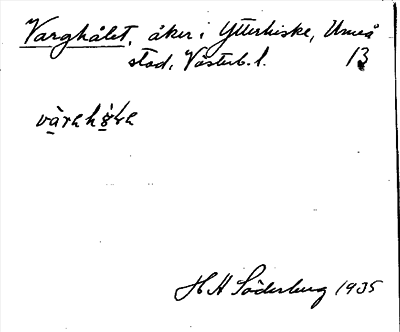 Varghålet, åker i Ytterhiske, Umeå
stad, Västerb. l. 13
H H Söderberg 1935